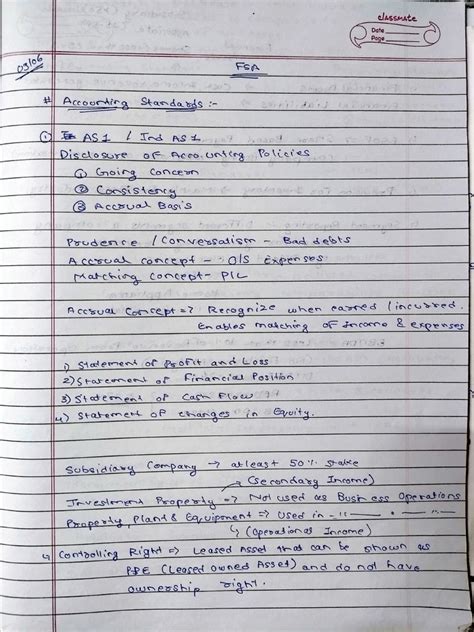 classmate
Date
Page
03/06
FSA
# Accounting Standards :-
① AS1 / Ind AS1
Disclosure of Accounting Policies
① Going Concern
② Consistency
③ Accrual Basis
Prudence / Conversatism - Bad debts
Accrual concept - O/S Expenses
Matching Concept - P/L
Accrual Concept => Recognize when earned / incurred.
Enables matching of Income & expenses
1) Statement of Profit and Loss
2) Statement of Financial Position
3) Statement of Cash Flow
4) Statement of changes in Equity.
Subsidiary Company → atleast 50% stake
↳ (Secondary Income)
Investment Property => Not used as Business Operations
Property, Plant & Equipment => Used in -"- - " - -"-
↳ (Operational Income)
↳ Controlling Right => Leased Asset that can be shown as
PPE (Leased owned Asset) and do not have
ownership right.